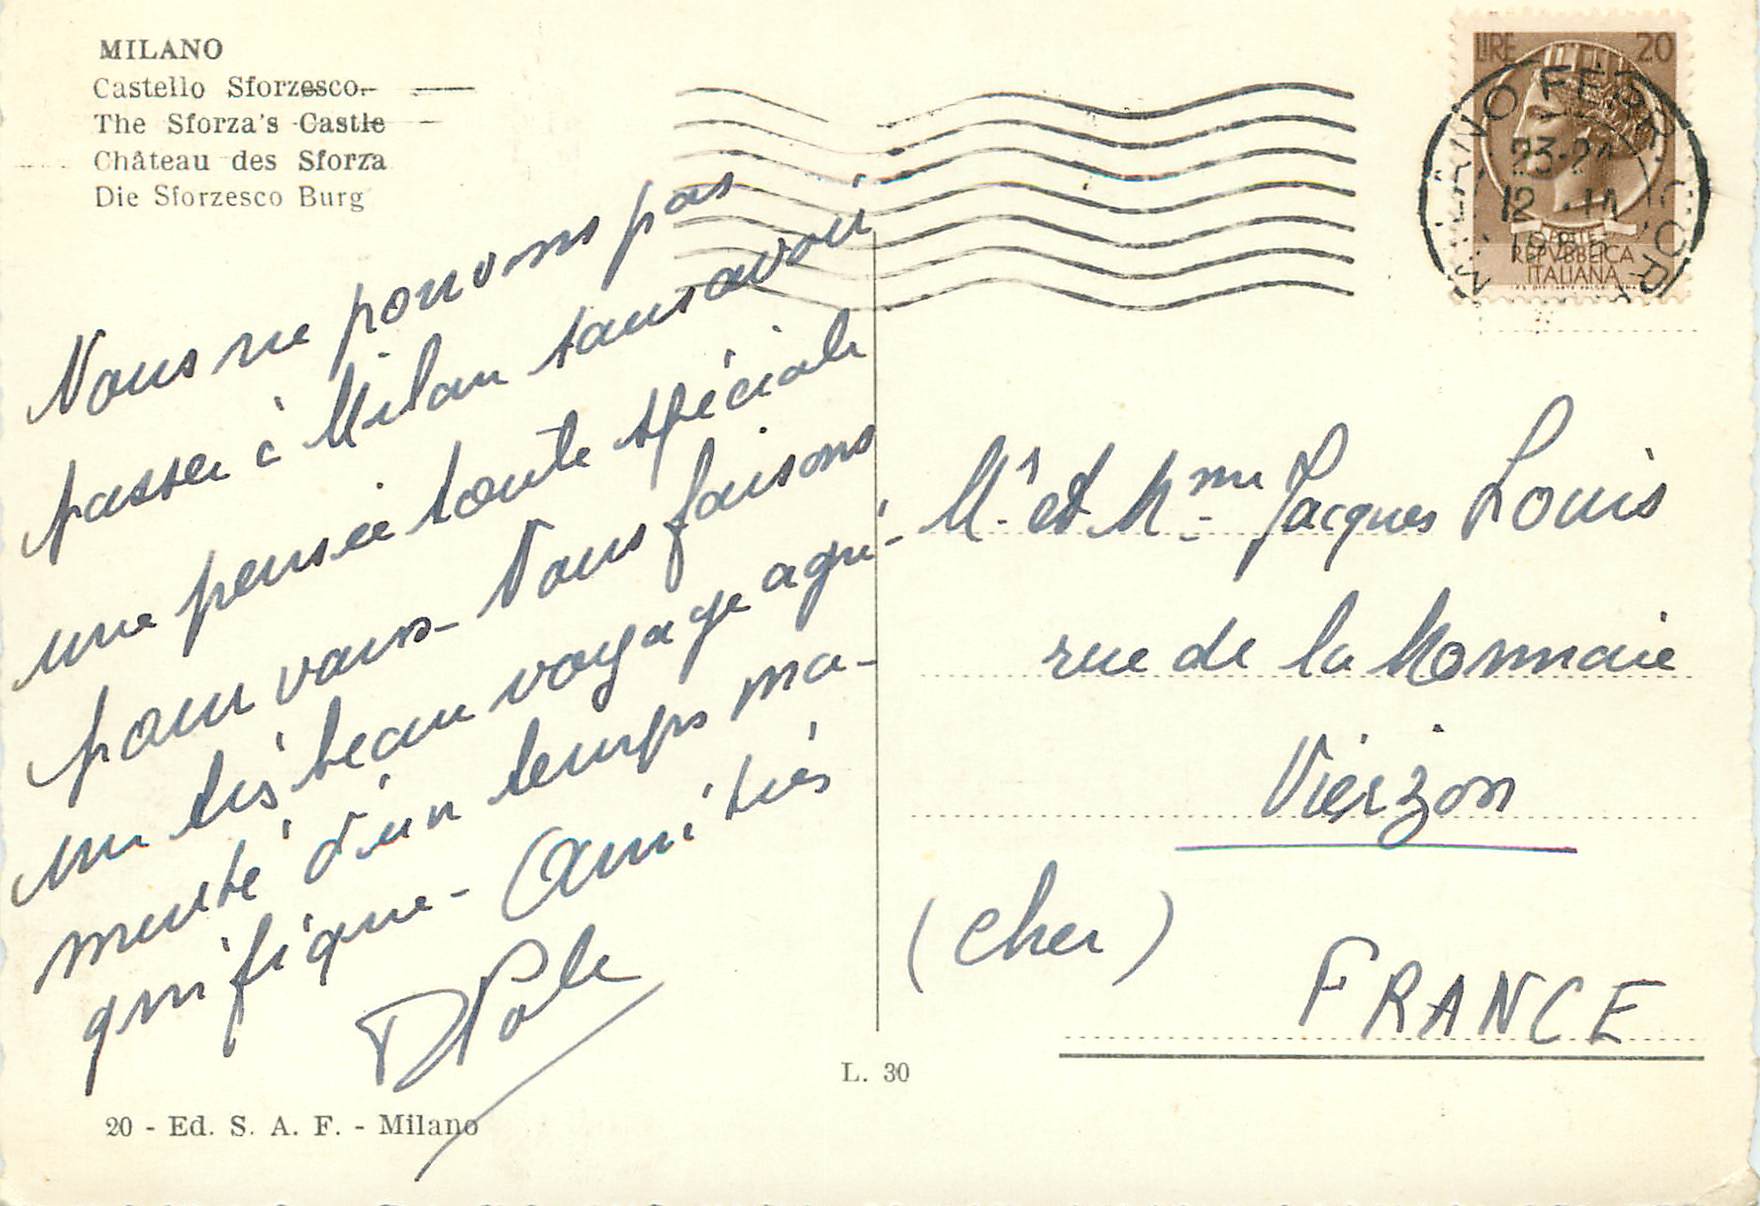 MILANO
Castello Sforzesco
The Sforza's Castle
Château des Sforza
Die Sforzesco Burg
LIRE 20
MILANO FERR
23-24
12
REPVBBLICA
ITALIANA
Nous ne pouvons pas
passer à Milan sans avoir
une pensée toute spéciale
pour vous - Nous faisons
un très beau voyage agré-
menté d'un temps ma-
gnifique - Amitiés
Mr. et Mme Jacques Louis
rue de la Monnaie
Vierzon
(Cher)
FRANCE
L. 30
20 - Ed. S. A. F. - Milano